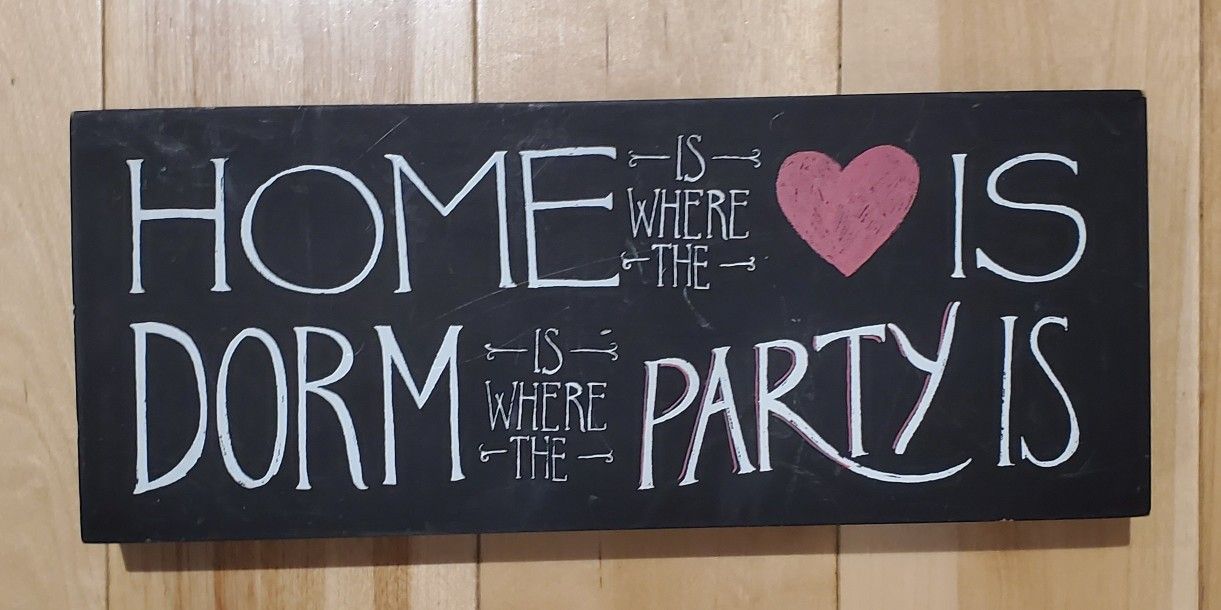 HOME IS WHERE THE IS
DORM IS WHERE THE PARTY IS